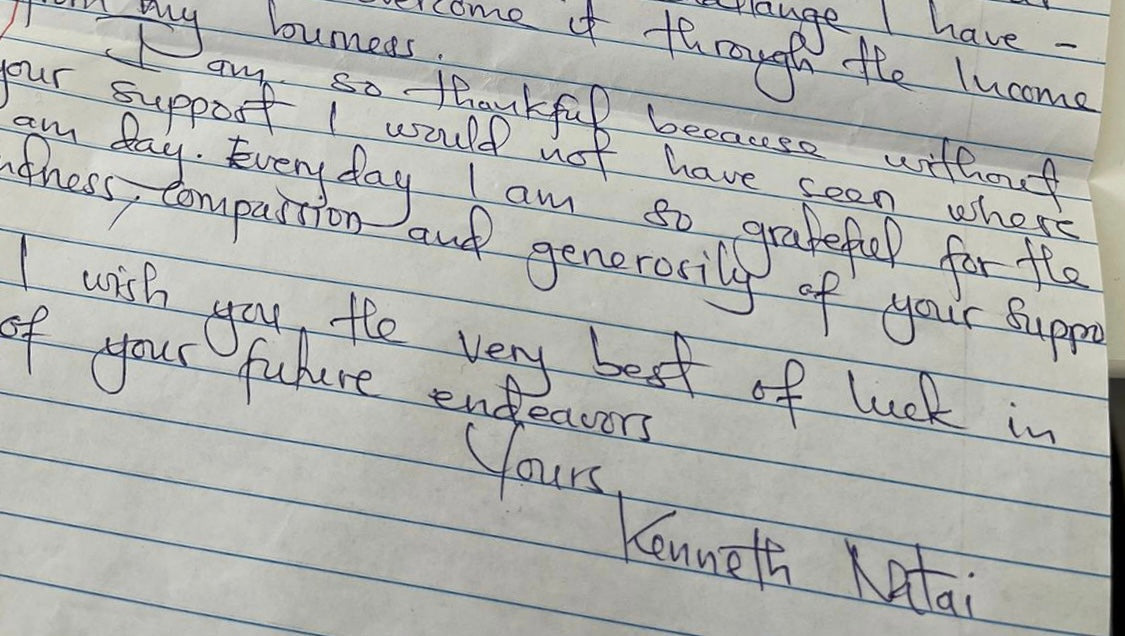 overcome it through the Income
my business.
I am so thankful because without
your support I would not have seen where
I am day. Everyday I am so grateful for the
compassion and generosity of your Suppo
I wish you the very best of luck in
of your future endeavors
Yours,
Kenneth Katai